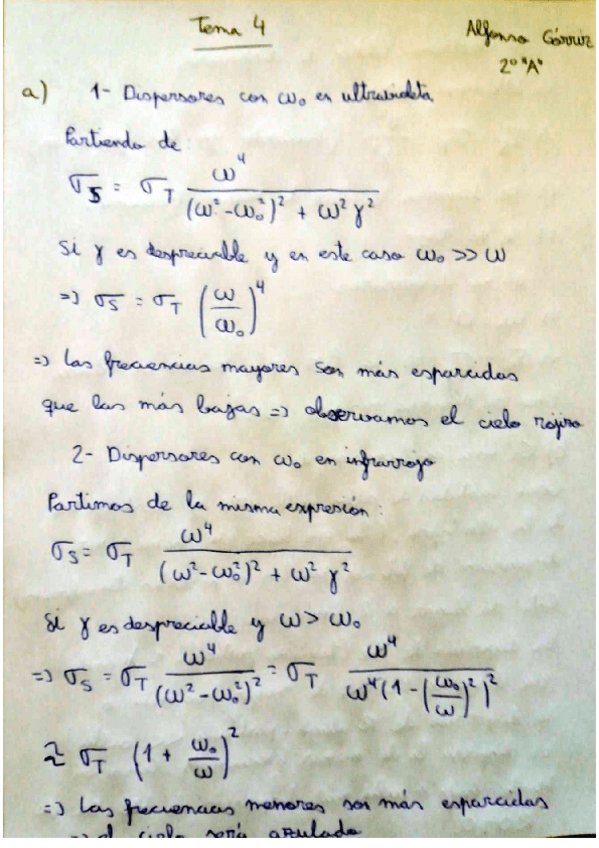 Tema 4
Alfonso Górriz
2º "A"
a) 1- Dispersores con ω₀ en ultravioleta
Partiendo de:
σ_S = σ_T ω⁴ / ((ω² - ω₀²)² + ω² γ²)
Si γ es despreciable y en este caso ω₀ >> ω
=> σ_S = σ_T (ω/ω₀)⁴
=> Las frecuencias mayores son más esparcidas
que las más bajas => observamos el cielo rojizo
2- Dispersores con ω₀ en infrarrojo
Partimos de la misma expresión:
σ_S = σ_T ω⁴ / ((ω² - ω₀²)² + ω² γ²)
Si γ es despreciable y ω > ω₀
=> σ_S = σ_T ω⁴ / (ω² - ω₀²)² = σ_T ω⁴ / (ω⁴ (1 - (ω₀/ω)²)²)
≈ σ_T (1 + ω₀/ω)²
=> Las frecuencias menores son más esparcidas
=> el cielo sería azulado